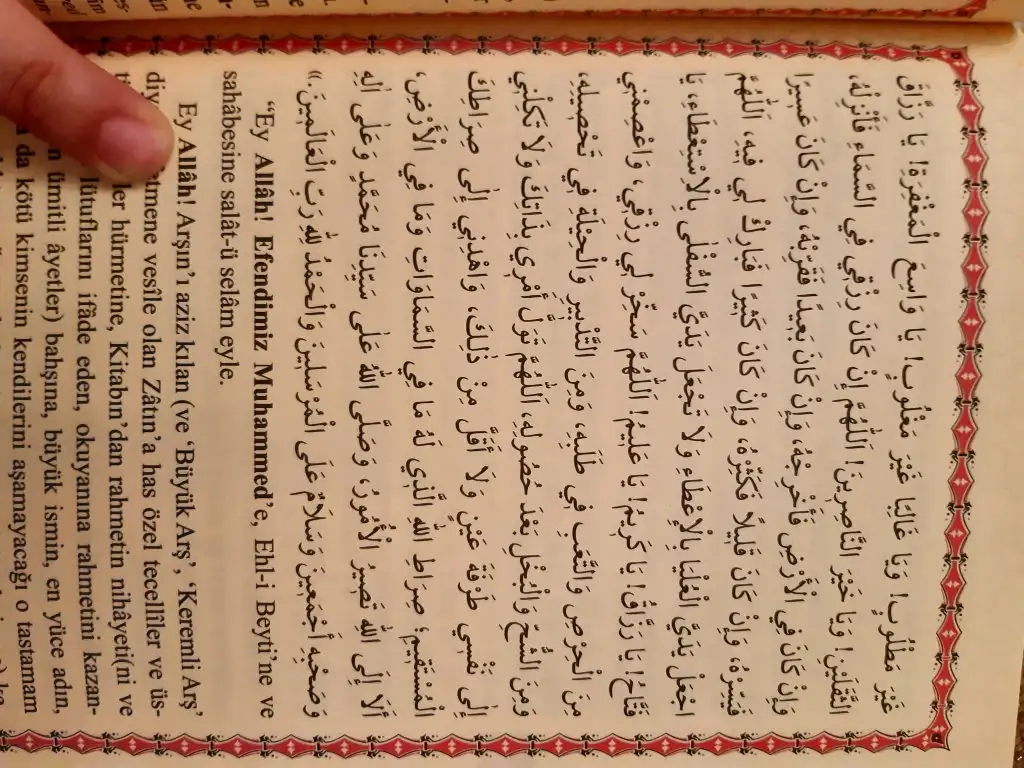 غَيْرَ مَطْلُوبٍ! وَيَا غَالِبًا غَيْرَ مَغْلُوبٍ! يَا وَاسِعَ الْمَغْفِرَةِ! يَا رَزَّاقَ
الثَّقَلَيْنِ! وَيَا خَيْرَ النَّاصِرِينَ! اَللّٰهُمَّ إِنْ كَانَ رِزْقِي فِي السَّمَاءِ فَأَنْزِلْهُ،
وَإِنْ كَانَ فِي الْأَرْضِ فَأَخْرِجْهُ، وَإِنْ كَانَ بَعِيدًا فَقَرِّبْهُ، وَإِنْ كَانَ عَسِيرًا
فَيَسِّرْهُ، وَإِنْ كَانَ قَلِيلاً فَكَثِّرْهُ، وَإِنْ كَانَ كَثِيرًا فَبَارِكْ لِي فِيهِ، اَللّٰهُمَّ
اجْعَلْ يَدَيَّ الْعُلْيَا بِالْإِعْطَاءِ وَلَا تَجْعَلْ يَدَيَّ السُّفْلٰى بِالْاِسْتِعْطَاءِ، يَا
فَتَّاحُ! يَا رَزَّاقُ! يَا كَرِيمُ! يَا عَلِيمُ! اَللّٰهُمَّ سَخِّرْ لِي رِزْقِي، وَاعْصِمْنِي
مِنَ الْحِرْصِ وَالتَّعَبِ فِي طَلَبِهِ، وَمِنَ التَّدْبِيرِ وَالْحِيْلَةِ فِي تَحْصِيلِهِ،
وَمِنَ الشُّحِّ وَالْبُخْلِ بَعْدَ حُصُولِهِ، اَللّٰهُمَّ تَوَلَّ أَمْرِي بِذَاتِكَ وَلَا تَكِلْنِي
إِلٰى نَفْسِي طَرْفَةَ عَيْنٍ وَلَا أَقَلَّ مِنْ ذٰلِكَ، وَاهْدِنِي إِلٰى صِرَاطِكَ
الْمُسْتَقِيمِ؛ صِرَاطِ اللهِ الَّذِي لَهُ مَا فِي السَّمَاوَاتِ وَمَا فِي الْأَرْضِ،
أَلَا إِلَى اللهِ تَصِيرُ الْأُمُورُ، وَصَلَّى اللهُ عَلٰى سَيِّدِنَا مُحَمَّدٍ وَعَلٰى اٰلِهِ
وَصَحْبِهِ أَجْمَعِينَ وَسَلَامٌ عَلَى الْمُرْسَلِينَ وَالْحَمْدُ لِلهِ رَبِّ الْعَالَمِينَ.»
“Ey Allâh! Efendimiz Muhammed’e, Ehl-i Beyti’ne ve
sahâbesine salât-ü selâm eyle.
Ey Allâh! Arşın’ı aziz kılan (ve ‘Büyük Arş’, ‘Keremli Arş’
itmene vesîle olan Zâtın’a has özel tecellîler ve üs-
ler hürmetine, Kitabın’dan rahmetin nihâyeti(ni ve
lütuflarını ifâde eden, okuyanına rahmetini kazan-
ümitli âyetler) bahşına, büyük ismin, en yüce adın,
da kötü kimsenin kendilerini aşamayacağı o tastamam